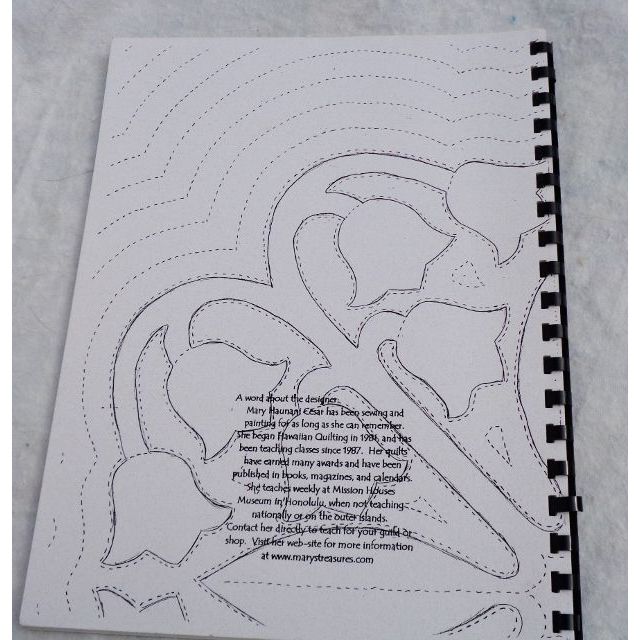 A word about the designer:
Mary Haunani Cesar has been sewing and
painting for as long as she can remember.
She began Hawaiian Quilting in 1981, and has
been teaching classes since 1987. Her quilts
have earned many awards and have been
published in books, magazines, and calendars.
She teaches weekly at Mission Houses
Museum in Honolulu, when not teaching
nationally or on the outer islands.
Contact her directly to teach for your guild or
shop. Visit her web-site for more information
at www.marystreasures.com